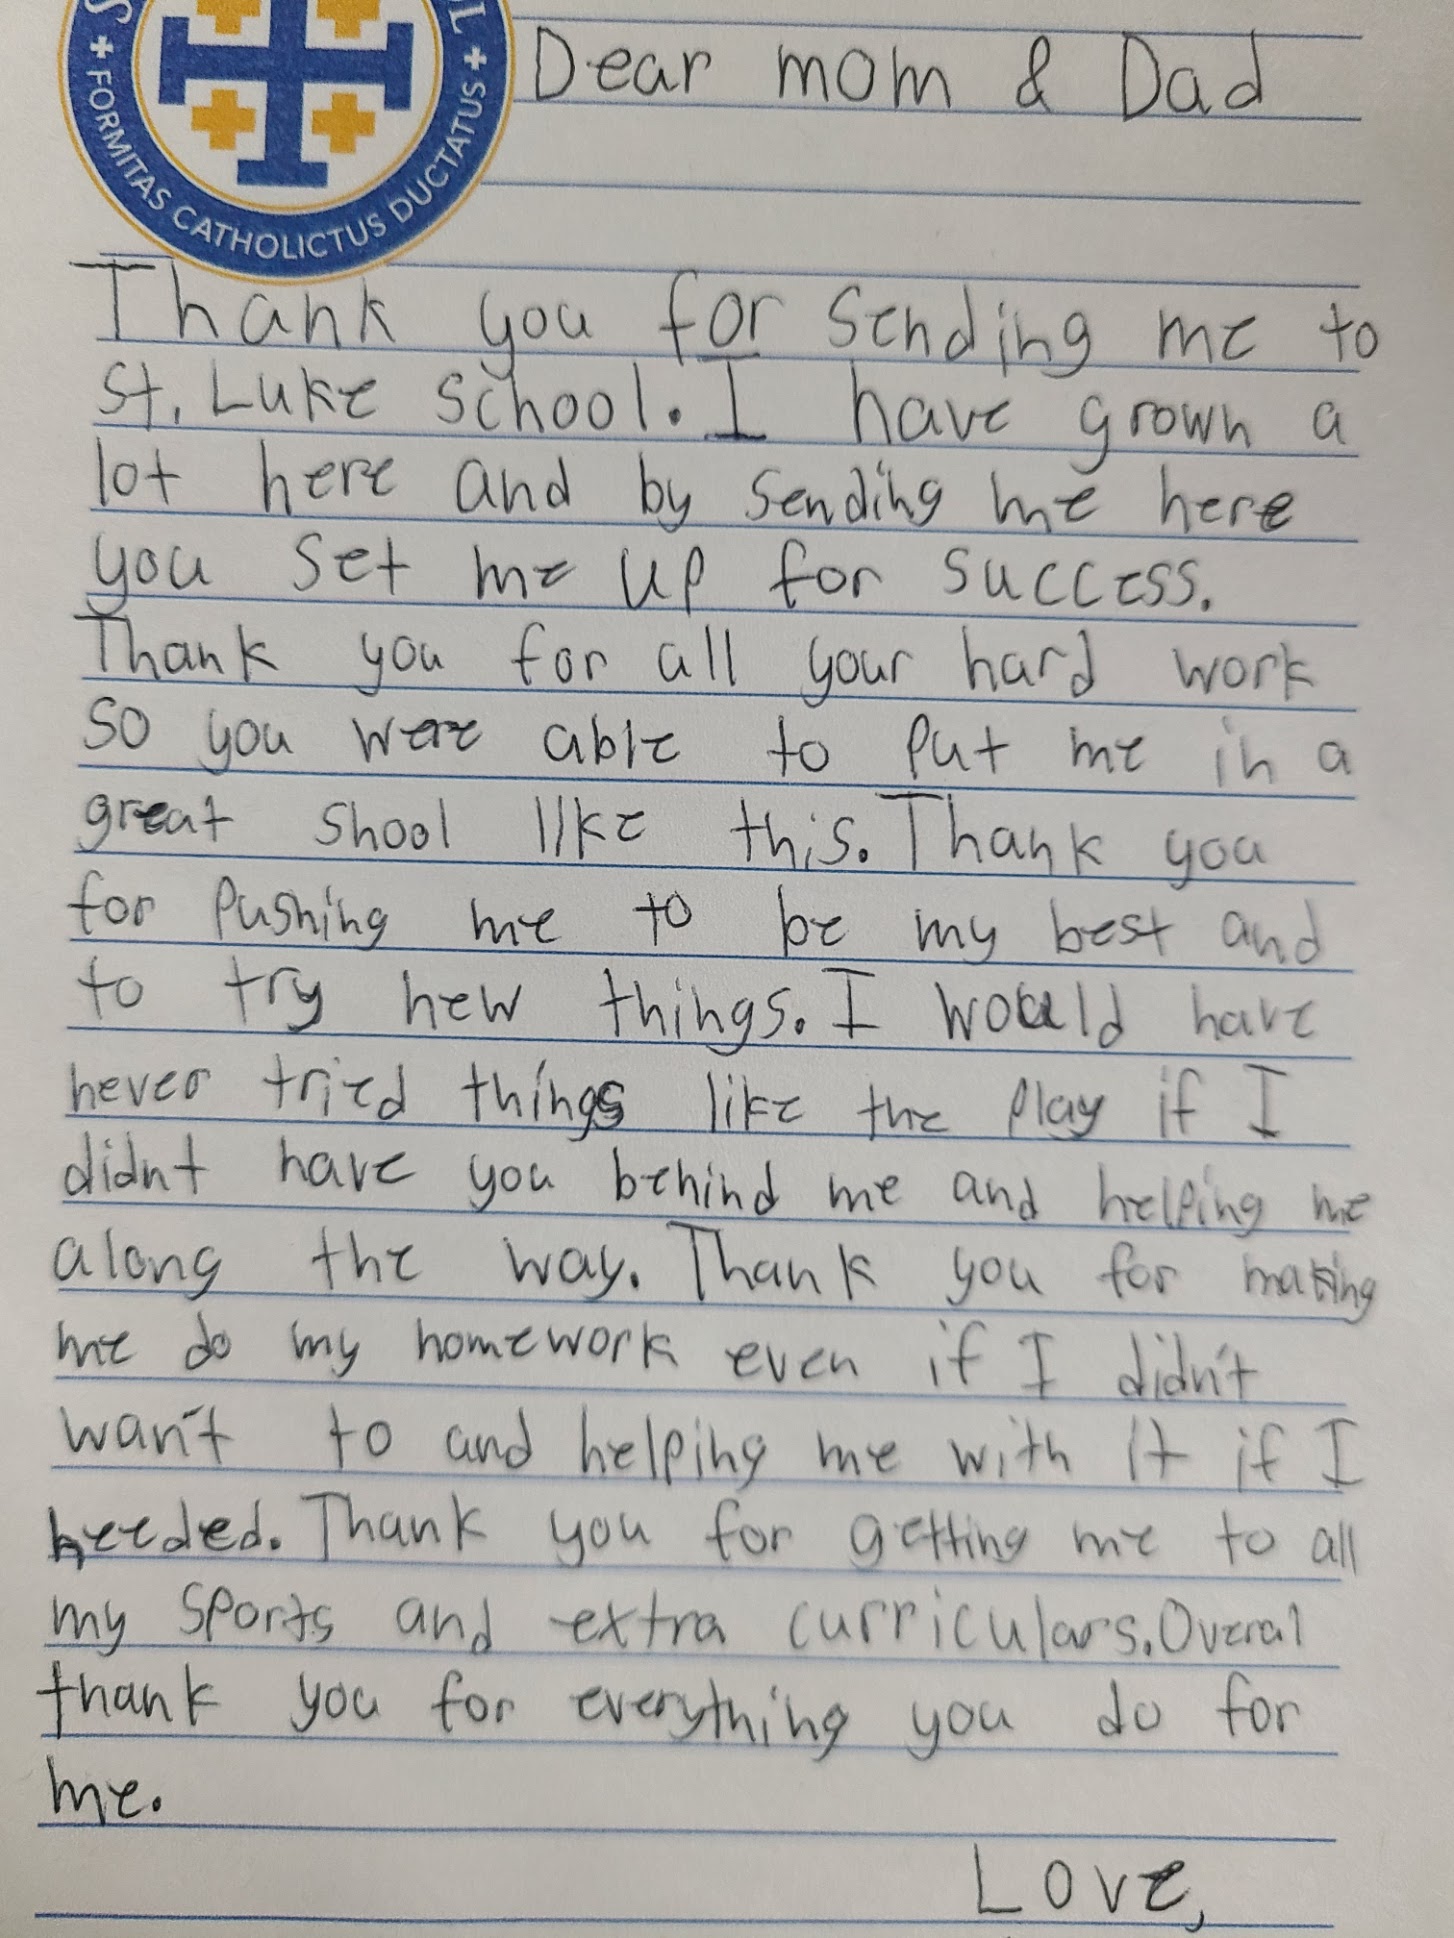 S + FORMITAS CATHOLICTUS DUCTATUS + L
Dear mom & Dad
Thank you for sending me to
St. Luke school. I have grown a
lot here and by sending me here
you set me up for success.
Thank you for all your hard work
so you were able to put me in a
great shool like this. Thank you
for pushing me to be my best and
to try new things. I would have
never tried things like the play if I
didnt have you behind me and helping me
along the way. Thank you for making
me do my homework even if I didn't
wan't to and helping me with it if I
needed. Thank you for getting me to all
my sports and extra curriculars. Overal
thank you for everything you do for
me.
Love,